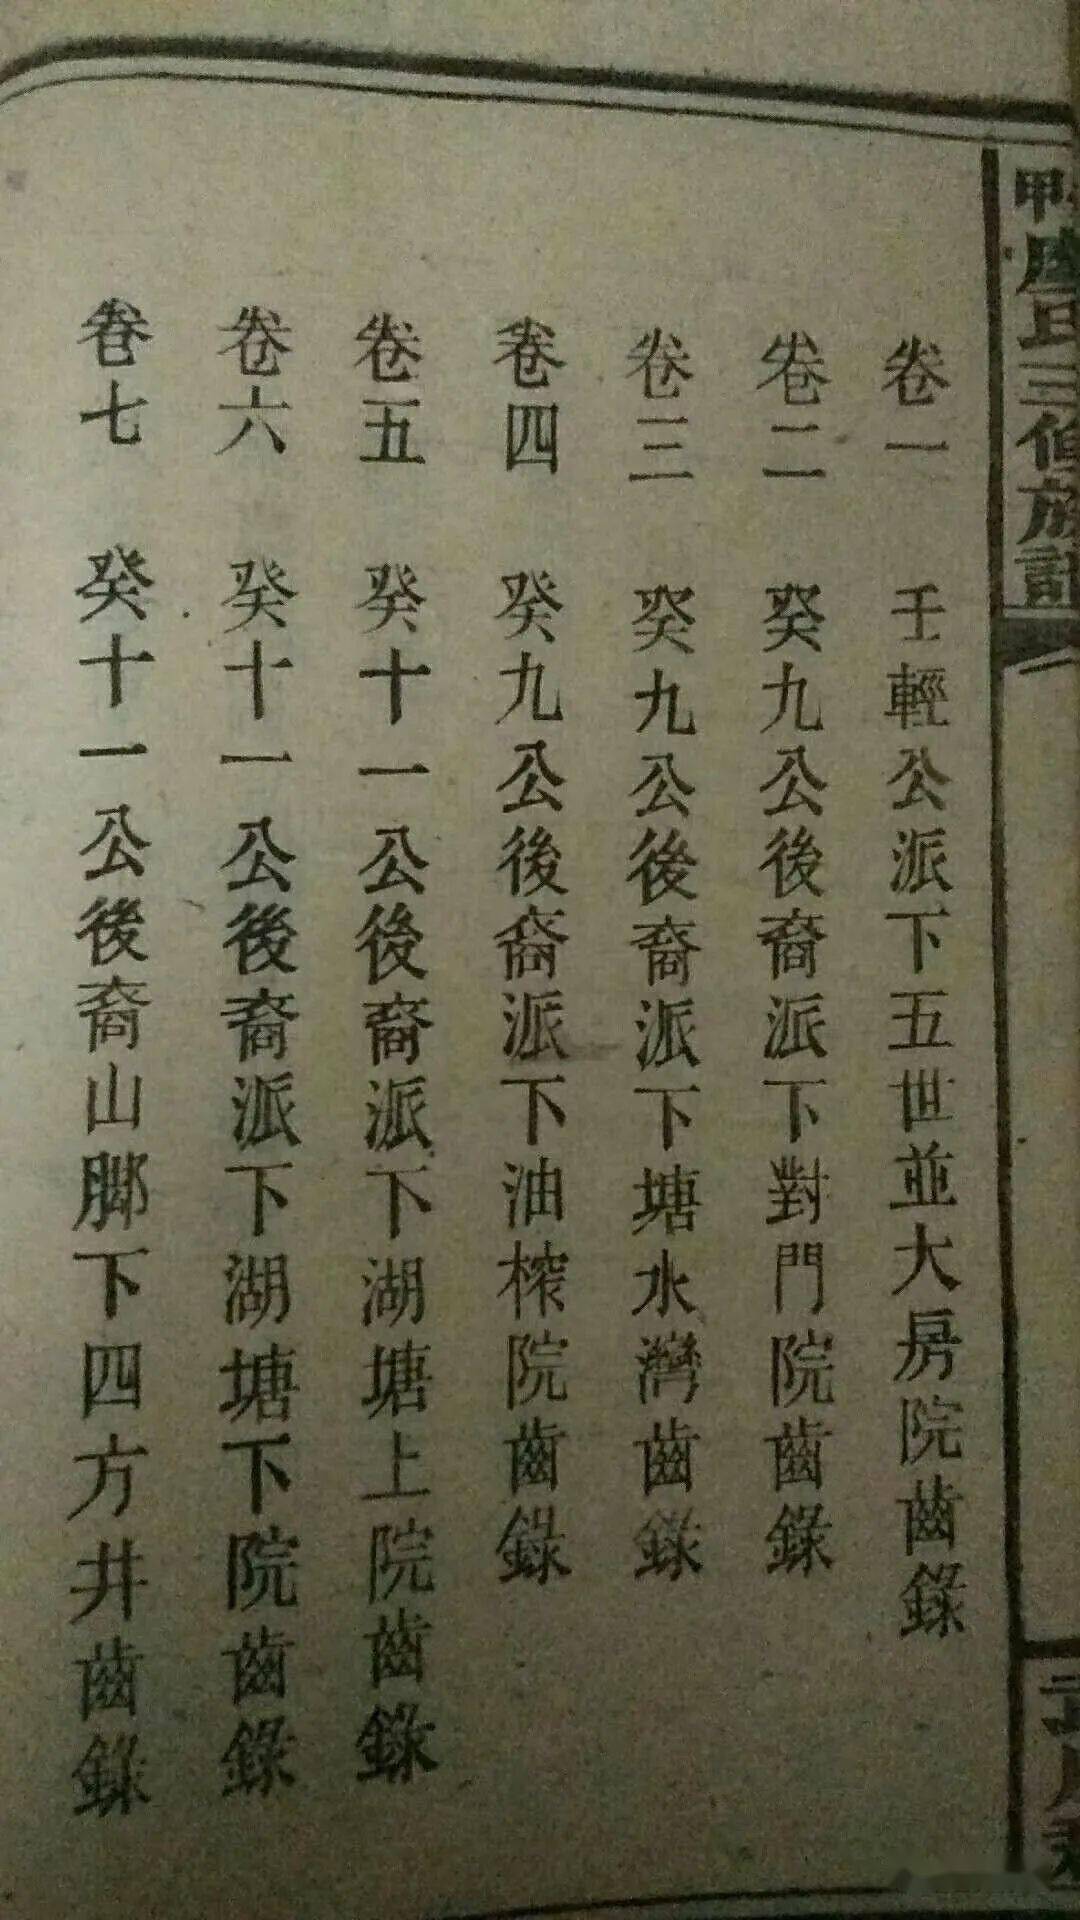 三修族
卷一 壬輕公派下五世並大房院齒錄
卷二 癸九公後裔派下對門院齒錄
卷三 癸九公後裔派下塘水灣齒錄
卷四 癸九公後裔派下油榨院齒錄
卷五 癸十一公後裔派下湖塘上院齒錄
卷六 癸十一公後裔派下湖塘下院齒錄
卷七 癸十一公後裔山腳下四方井齒錄